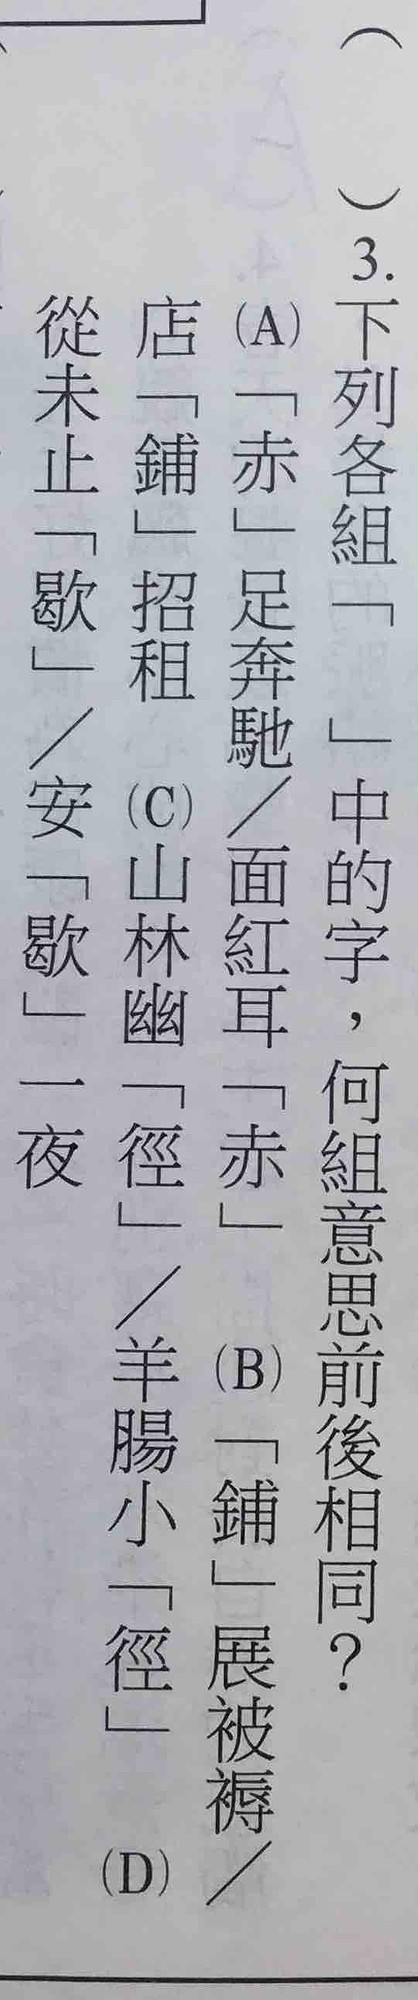 （　）3.下列各組「　」中的字，何組意思前後相同？
(A)「赤」足奔馳／面紅耳「赤」　(B)「鋪」展被褥／
店「鋪」招租　(C)山林幽「徑」／羊腸小「徑」　(D)
從未止「歇」／安「歇」一夜